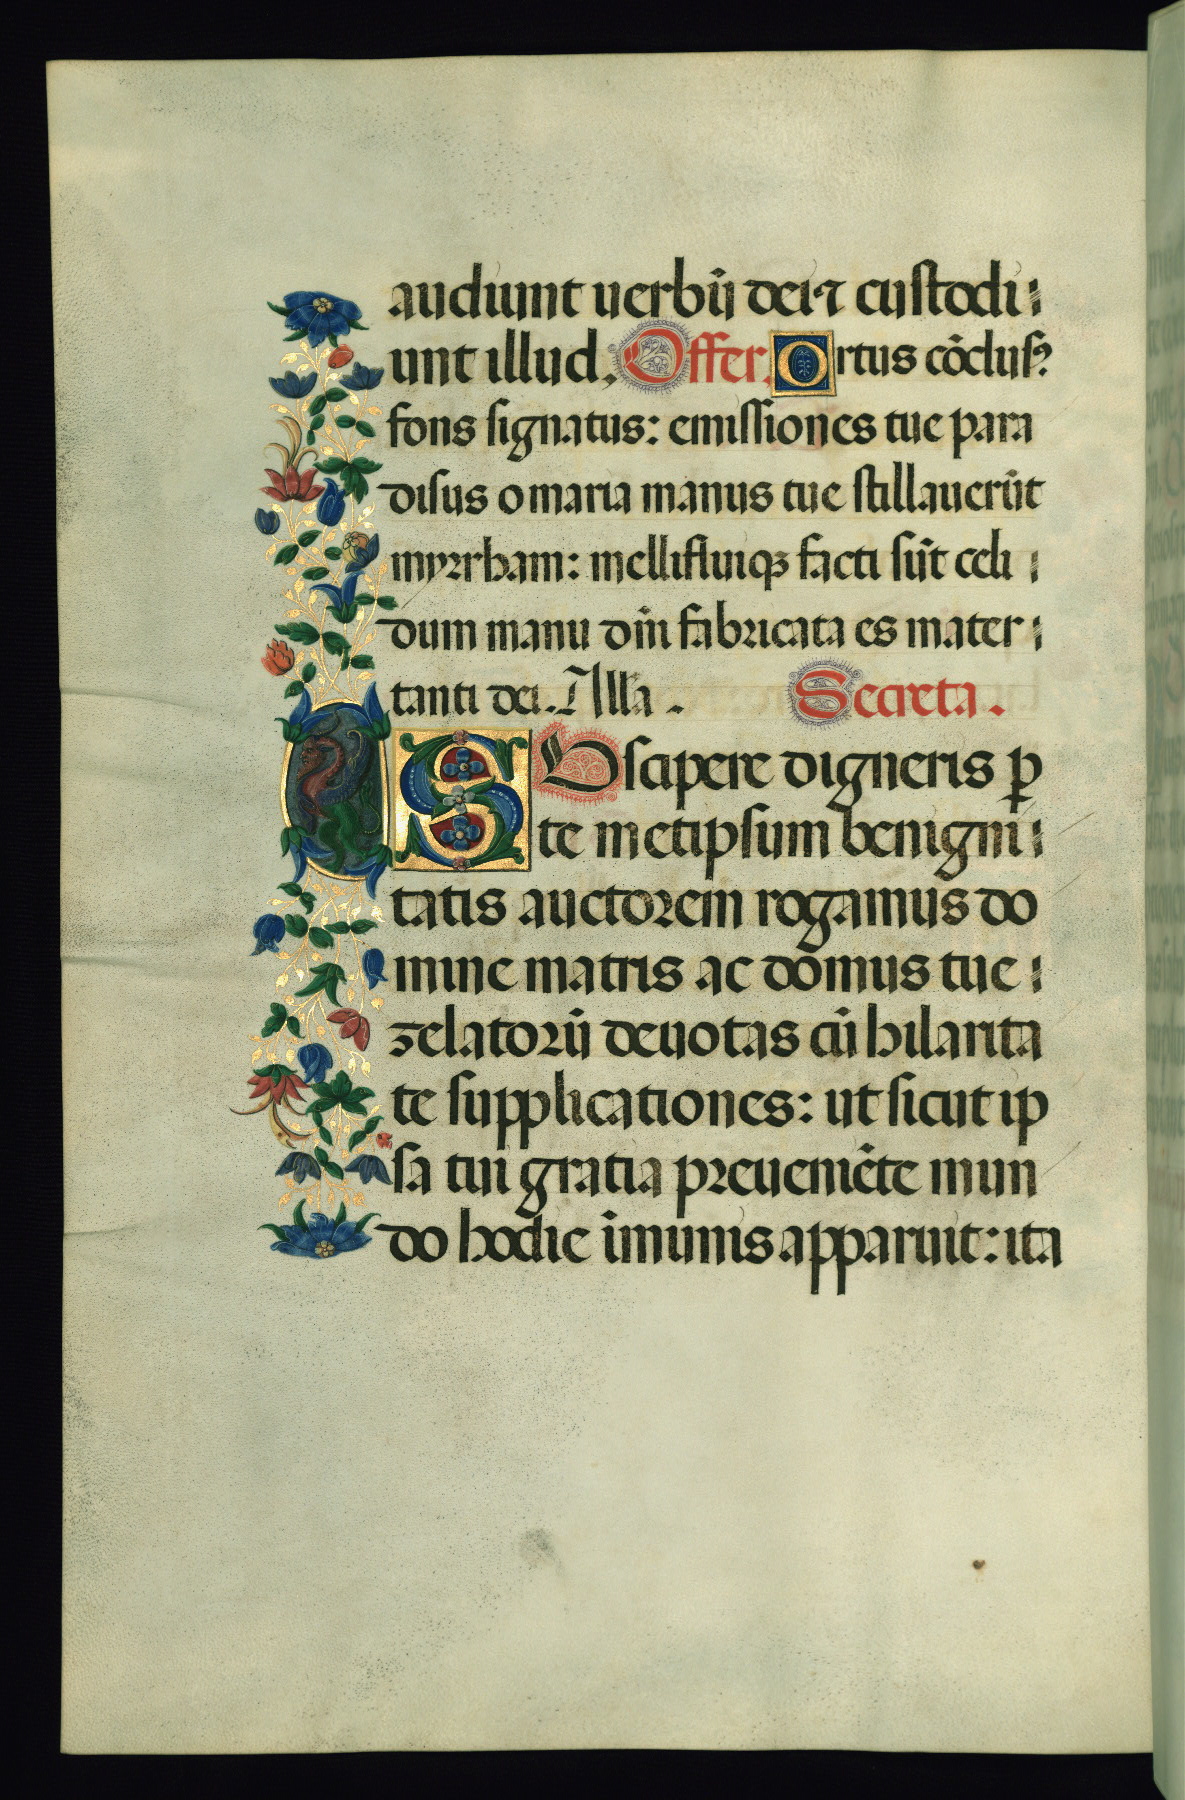 audiunt uerbū dei ⁊ custodi
unt illud. Offer. Ortus cōclus?
fons signatus: emissiones tue para
disus o maria manus tue stillauerūt
myrrham: mellifluiqꝫ facti sūt celi
dum manu dn̄i fabricata es mater
tanti dei. Alla. Secreta.
SUscipere digneris ꝑ
te metipsum benigni
tatis auctorem rogamus do
mine matris ac domus tue
zelatorū deuotas cū hilarita
te supplicationes: ut sicut ip
sa tui gratia preueniēte mun
do hodie īmunis apparuit: ita